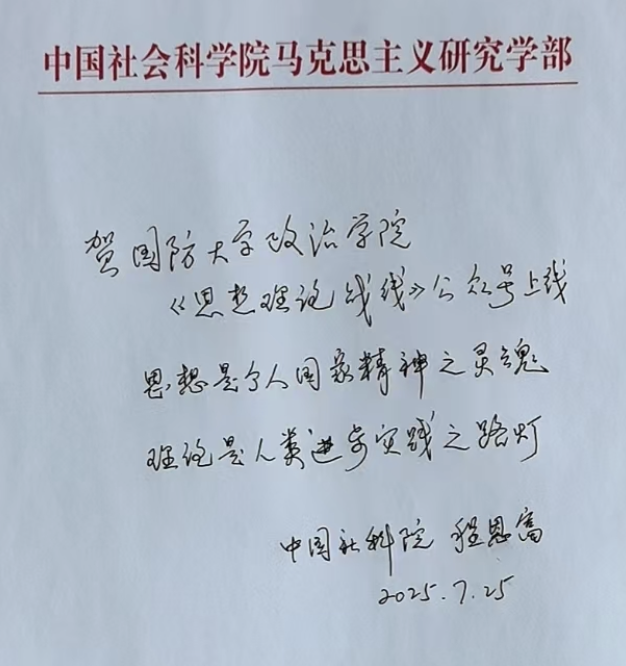 中国社会科学院马克思主义研究学部
贺国防大学政治学院
《思想理论战线》公众号上线
思想是个人国家精神之灵魂
理论是人类进步实践之路灯
中国社科院 程恩富
2025.7.25